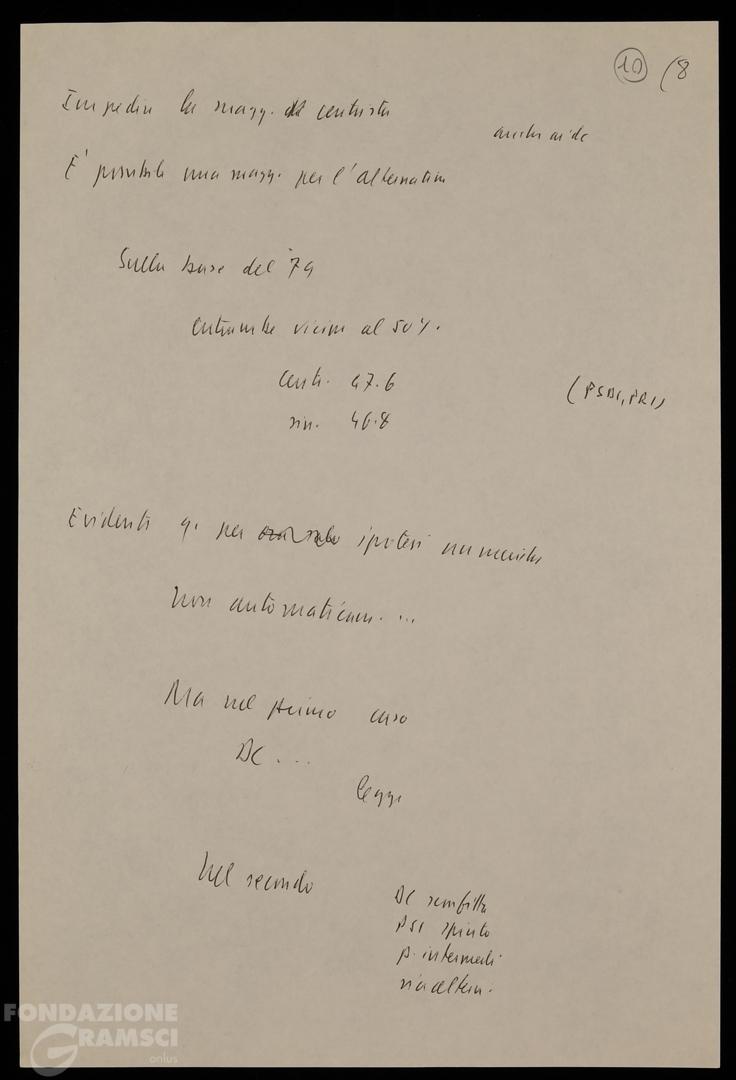 10 /8
Impedire la magg. centrista
anche
E' possibile una magg. per l'alternativa
Sulla base del '79
entrambe vicine al 50%.
centr. 47.6 (PSDI, PRI)
sin. 46.8
Evidente q. per ipotesi numerica
non automaticam. ...
Ma nel primo caso
DC ...
leggi
Nel secondo
DC sconfitta
PSI spinto
p. intermedi
via altern.
FONDAZIONE
GRAMSCI
onlus